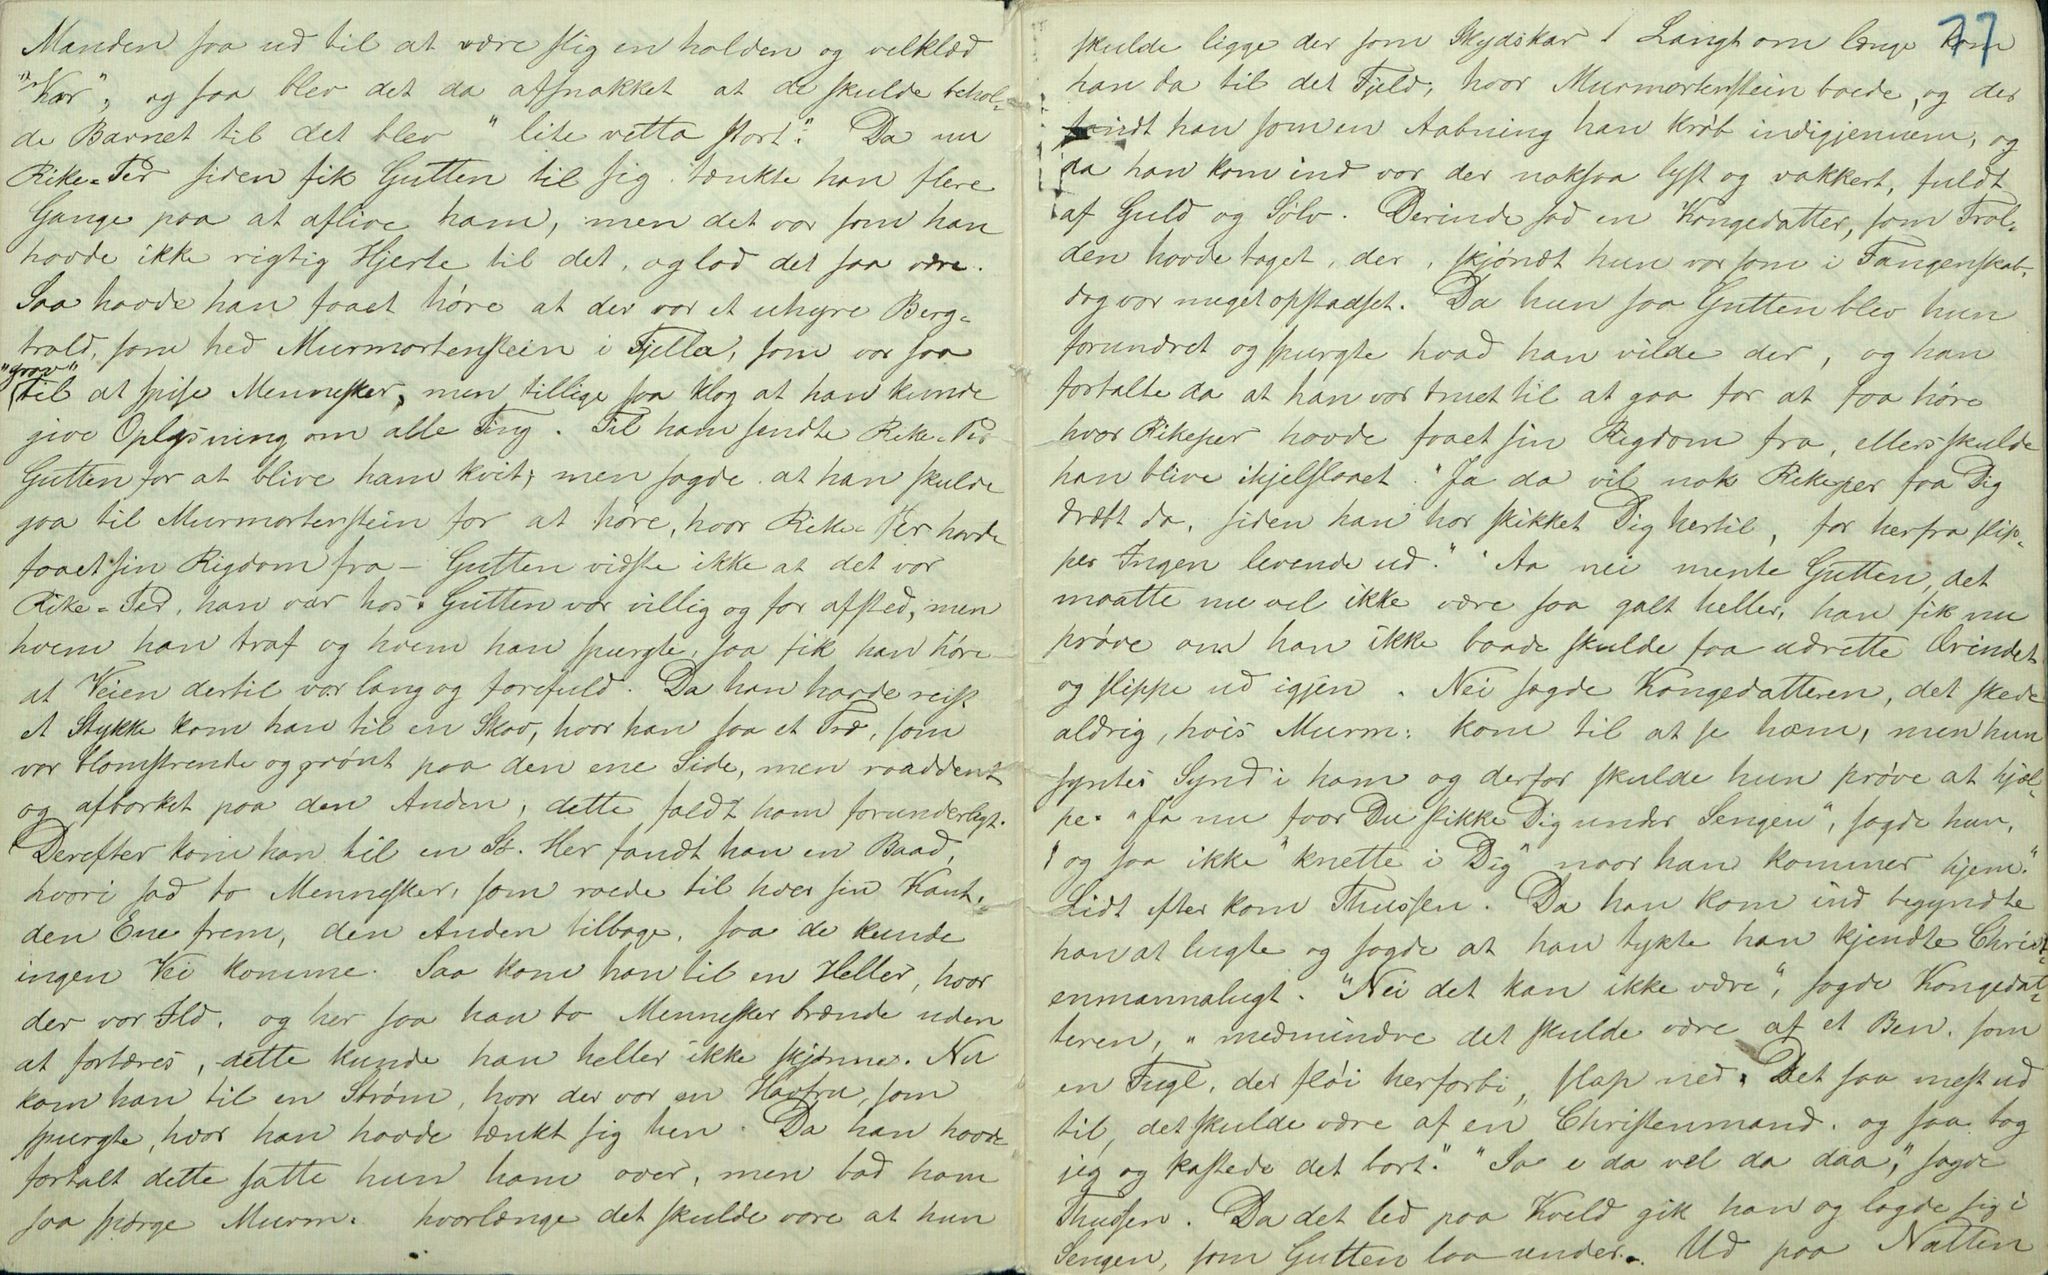 Manden saa ud til at være slig en holden og velklæd
"Kar", og saa blev det da afsnakket at de skulde behol-
de Barnet til det blev "lite vetta stort". Da nu
Rike-Per siden fik Gutten til sig tænkte han flere
Gange paa at aflive ham, men det var som han
havde ikke rigtig Hjerte til det, og lod det saa være.
Saa havde han faaet høre at der var et uhyre Berg-
trold, som hed Murmortenstein i Fjella, som var saa
"grov"
til at spise Mennesker, men tillige saa klog at han kunde
give Oplysning om alle Ting. Til ham sendte Rike-Per
Gutten for at blive ham kvit; men sagde at han skulde
gaa til Murmortenstein for at høre, hvor Rike-Per havde
faaet sin Rigdom fra – Gutten vidste ikke at det var
Rike-Per, han var hos. Gutten var villig og for afsted, men
hvem han traf og hvem han spurgte, saa fik han høre
at Veien dertil var lang og farefuld. Da han havde reist
et Stykke kom han til en Skov, hvor han saa et Træ, som
var blomstrende og grønt paa den ene Side, men raaddent
og afbarket paa den Anden, dette faldt ham forunderligt.
Derefter kom han til en Sø. Her fandt han en Baad,
hvori sad to Mennesker, som roede til hver sin Kant,
den Ene frem, den Anden tilbage, saa de kunde
ingen Vei komme. Saa kom han til en Heller, hvor
der var Ild, og her saa han to Mennesker brænde uden
at fortæres, dette kunde han heller ikke skjønne. Nu
kom han til en Strøm, hvor der var en Havfru, som
spurgte, hvor han havde tænkt sig hen. Da han havde
fortalt dette satte hun ham over, men bad ham
saa spørge Murm. hvorlænge det skulde vare at hun
77
skulde ligge der som Skydskar! Langt om længe kom
han da til det Fjeld, hvor Murmortenstein boede, og der
fandt han som en Aabning han krøb indigjennem, og
da han kom ind var der noksaa lyst og vakkert, fuldt
af Guld og Sølv. Derinde sad en Kongedatter, som Trol-
den havde taget, der, skjøndt hun var som i Fangenskab,
dog var meget opstadset. Da hun saa Gutten blev hun
forundret og spurgte hvad han vilde der, og han
fortalte da at han var truet til at gaa for at faa høre
hvor Rikeper havde faaet sin Rigdom fra, ellers skulde
han blive ihjelslaaet. "Ja da vil nok Rikeper faa Dig
dræbt da, siden han har skikket Dig hertil, for herfra slip-
per Ingen levende ud." "Aa nei mente Gutten, det
maatte nu vel ikke være saa galt heller, han fik nu
prøve om han ikke baade skulde faa udrette Ærindet
og slippe ud igjen. Nei sagde Kongedatteren, det skede
aldrig, hvis Murm: kom til at se ham, men hun
syntes Synd i ham og derfor skulde hun prøve at hjæl-
pe. "Ja nu faar Du stikke Dig under Sengen", sagde hun,
"og saa ikke "knette i Dig" naar han kommer hjem."
Lidt efter kom Thussen. Da han kom ind begyndte
han at lugte og sagde at han tykte han kjendte Christ-
enmannalugt. "Nei det kan ikke være", sagde Kongedat-
teren, "medmindre det skulde være af et Ben, som
en Fugl, der fløi herforbi, slap ned. Det saa mest ud
til, det skulde være af en Christenmand, og saa tog
jeg og kastede det bort." "Saa e da vel da daa", sagde
Thussen. Da det led paa Kveld gik han og lagde sig i
Sengen, som Gutten laa under. Ud paa Natten